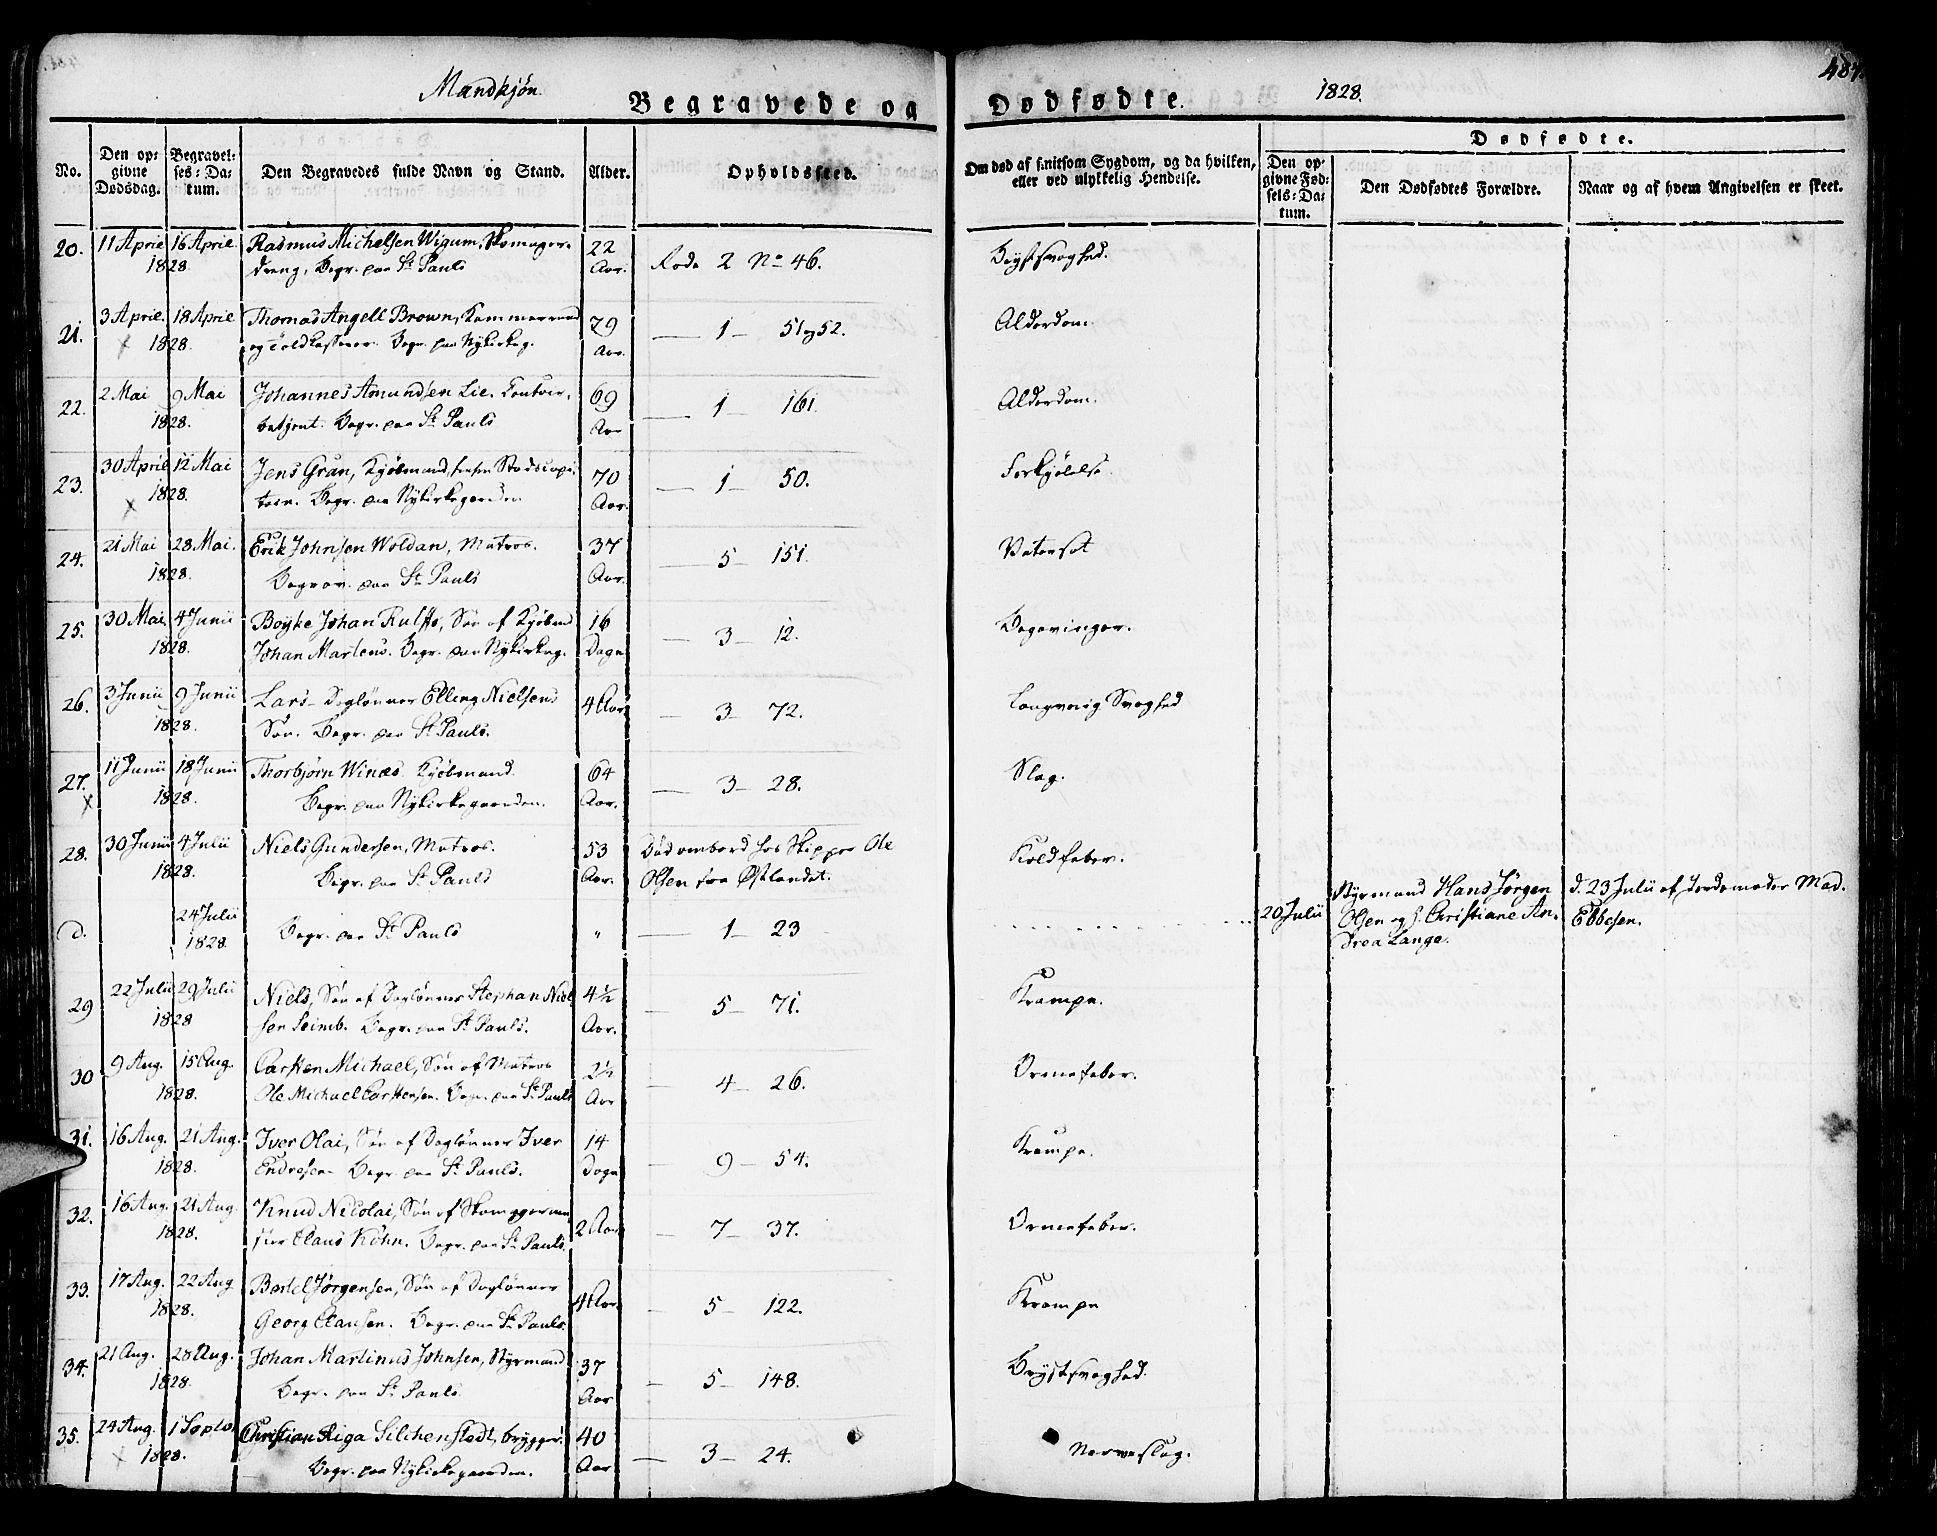 Mandkjøn.
Begravede og
Dødfødte.
1828.
484.
No.
Den op-
givne
Dødsdag.
Begravel-
ses-Da-
tum.
Den Begravedes fulde Navn og Stand.
Alder.
Opholdssted.
Om død af smitsom Sygdom, og da hvilken,
eller ved ulykkelig Hendelse.
Dødfødte.
Den op-
givne Fød-
sels-Da-
tum.
Den Dødfødtes Forældre.
Naar og af hvem Angivelsen er skeet.
20. 11 April 16 April Rasmus Michelsen Wigum, Skomager- 22 Rode 2 No 46. Brystsvaghed.
1828. dreng, Begr. paa St Pauls Aar.
21. 3 April. 18 April Thomas Angell Brown, Kammerraad 79 — 1 — 51 og 52. Alderdom.
1828. og Toldkasserer. Begr. paa Nykirkeg. Aar.
22. 2 Mai 9 Mai Johannes Amundsen Lie. Contoir- 69 — 1 — 161. Alderdom.
1828. betjent. Begr. paa St Pauls Aar
23. 30 April 12 Mai Jens Gran, Kjøbmand, Stadscapi- 70 — 1 — 50. Forkjølelse.
1828. tain. Begr. paa Nykirkegaarden Aar.
24. 21 Mai 28 Mai. Erik Johnsen Woldan, Matros. 37 — 5 — 151. Vatersot
1828. Begrav. paa St Pauls Aar.
25. 30 Mai 4 Junii Boyke Johan Rulffs, Søn af Kjøbmd 16 — 3 — 12.
1828. Johan Martens. Begr. paa Nykirkeg. Dage
26. 3 Junii 9 Junii Lars — Dagløнner Elling Nielsens 4 Aar — 3 — 72. Langvarig Svaghed
1828. Søn. Begr. paa St Pauls.
27. 11 Junii 18 Junii Thorbjørn Winæs Kjøbmand. 64 — 3 — 28. Slag.
1828. Begr. paa Nykirkegaarden. Aar.
28. 30 Junii 4 Julii Niels Gundersen, Matros. 53 Død ombord hos Skipper Ole Koldfeber.
1828. Begr. paa St Pauls Aar. Olsen fra Østlandet.
D. 24 Julii Begr. paa St Pauls " — 1 — 23 20 Julii Styrmand Hans Jørgen d. 23 Julii af Jordemoder Mad.
1828. Olsen og H. Christiane An- Ebbesen.
drea Lange.
29 22 Julii 29 Julii Niels, Søn af Daglønner Stephan Niel- 4½ — 5 — 71. Krampe.
1828 sen Seimb. Begr. paa St Pauls. Aar.
30 9 Aug. 15 Aug. Carsten Michael, Søn af Matros 2½ — 4 — 26. Ormefeber.
1828. Ole Michael Carstensen. Begr. paa St Pauls Aar
31. 16 Aug. 21 Aug. Iver Olai, Søn af Daglønner Iver 14 — 9 — 54. Krampe.
1828. Endresen — Begr. paa St Pauls. Dage
32. 16 Aug. 21 Aug. Knud Nicolai, Søn af Skomagersven- 2 Aar — 7 — 37. Ormefeber.
1828. Claus Köhn. Begr. paa St Pauls.
33. 17 Aug. 22 Aug Bertel Jørgensen, Søn af Daglønner 4 Aar. — 5 — 122. Krampe
1828. Georg Clausen. Begr. paa St Pauls.
34. 21 Aug. 28 Aug. Johan Martinus Johnsen, Styrmand 37 — 5 — 148. Brystsvaghed.
1828. Begr. paa St Pauls Aar
35. 24 Aug. 1 Septbr Christian Riga Silchenstedt, brygger. 40 — 3 — 24. Nerveslag.
1828. Begr. paa Nykirkegaarden. Aar